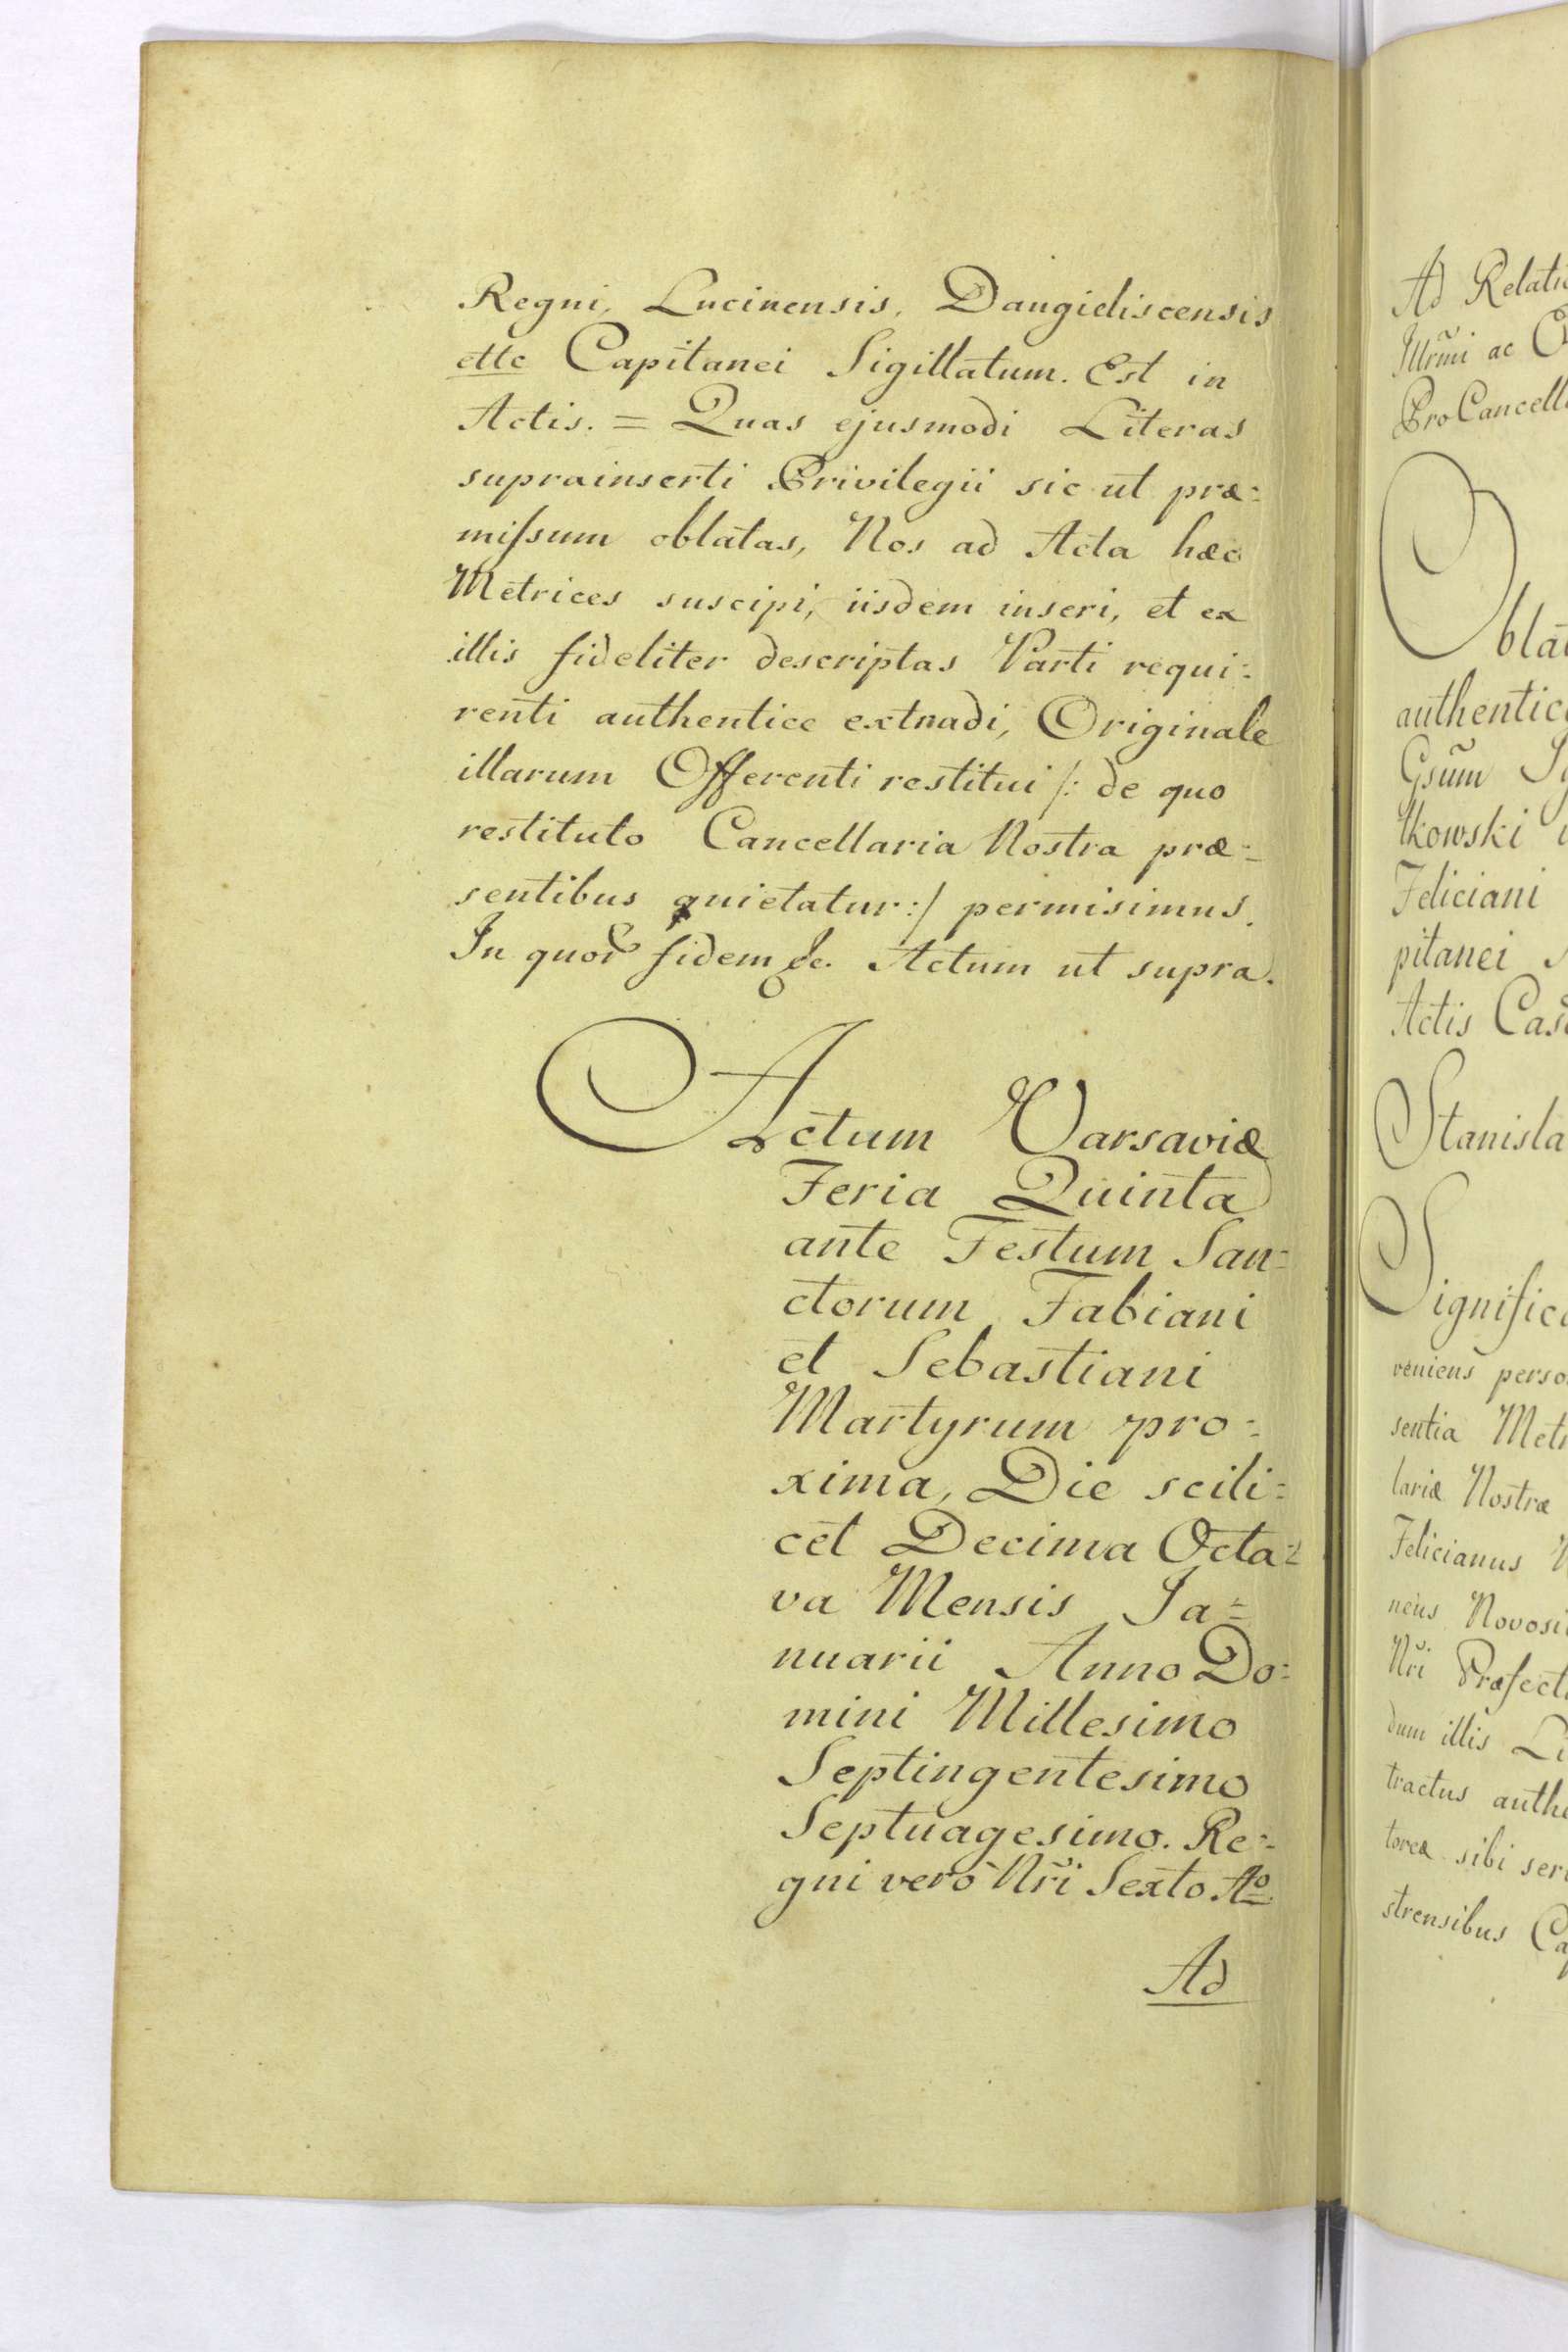 Regni, Lucinensis, Daugieliscensis
ettc Capitanei Sigillatum. Est in
Actis. = Quas ejusmodi Literas
suprainserti Privilegii sic ut præ=
missum oblatas, Nos ad Acta hæc
Metrices suscipi, iisdem inseri, et ex
illis fideliter descriptas Parti requi=
renti authentice extradi, Originale
illarum Offerenti restitui /: de quo
restituto Cancellaria Nostra præ=
sentibus quietatur :/ permisimus.
In quor fidem &c. Actum ut supra.
Actum Varsaviæ
Feria Quinta
ante Festum San=
ctorum Fabiani
et Sebastiani
Martyrum pro=
xima, Die scili=
cet Decima Octa=
va Mensis Ja=
nuarii Anno Do=
mini Millesimo
Septingentesimo
Septuagesimo. Re=
gni verò Nr̃i Sexto Aº
Ad
Ad Relatio
Illrm̃i ac
ProCancella
Obla
authentic
Gsũm
lkowski
Feliciani
pitanei
Actis Cas
Stanisla
Significa
veniens perso
sentia Metr
lariæ Nostræ
Felicianus
neus Novosi
Nr̃i Præfect
dum illis Li
tractus authe
toreæ sibi ser
strensibus Ca